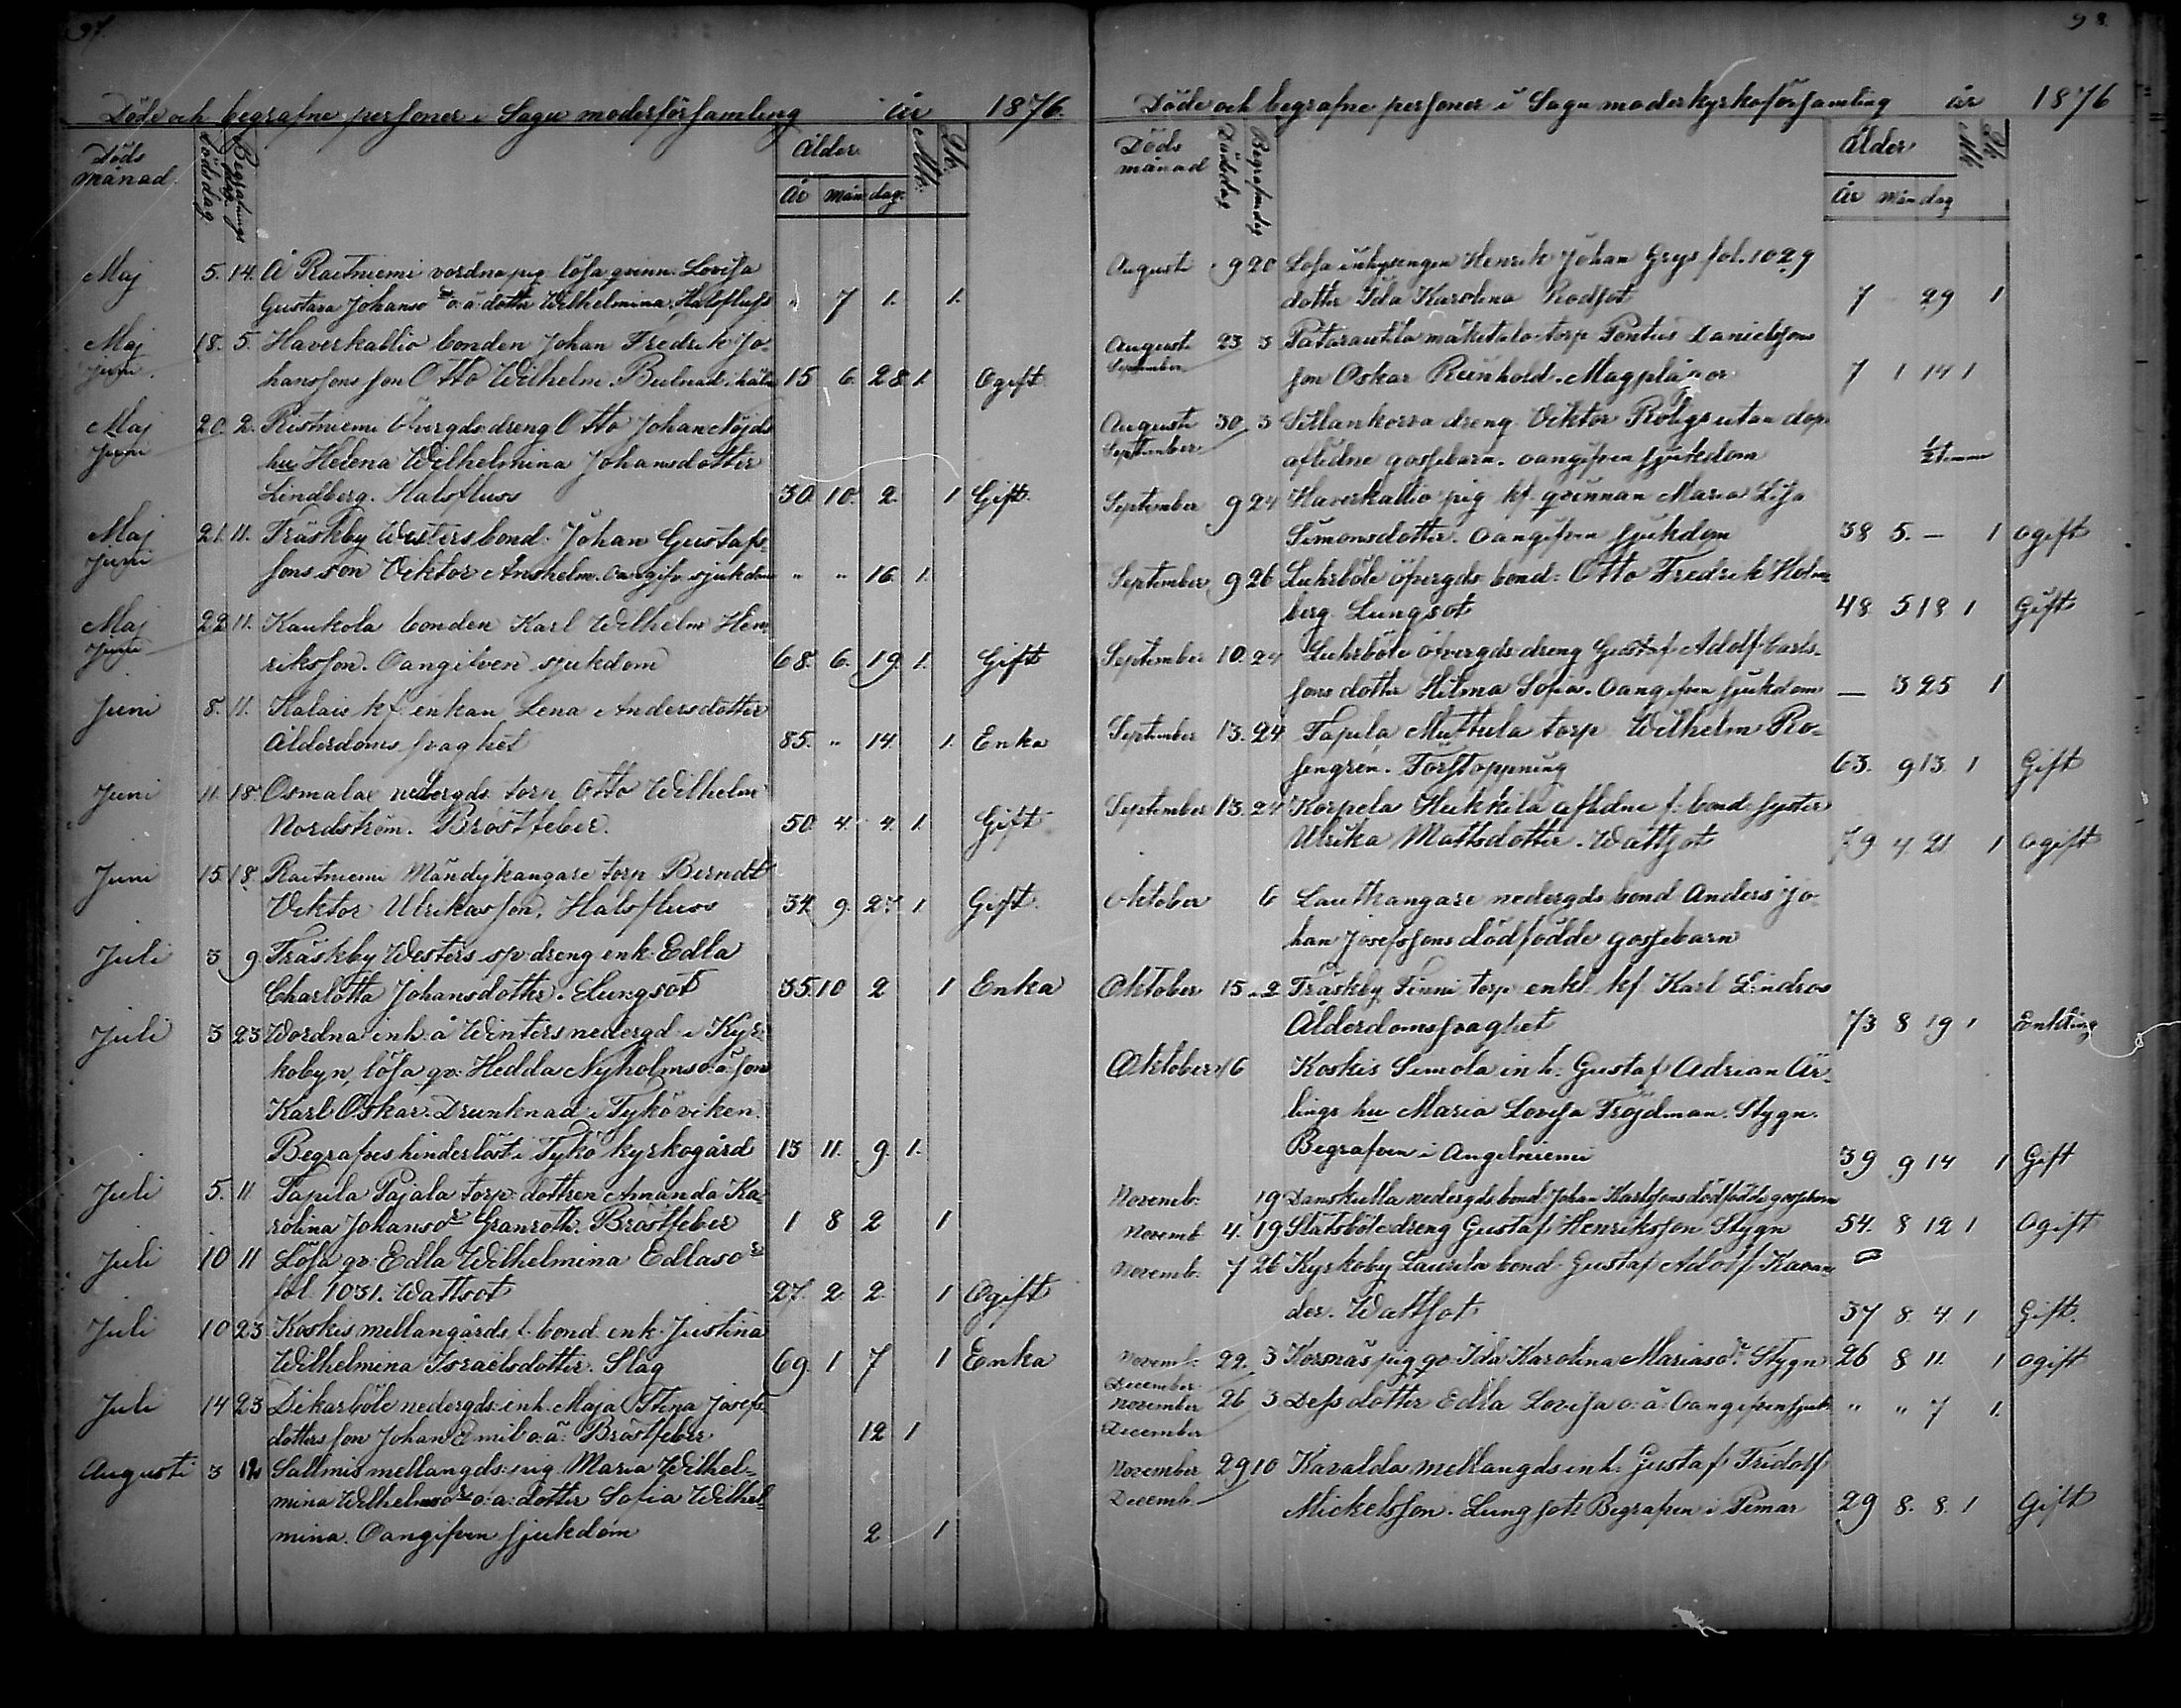 97.
Döde och begrafne personer i Sagu moderförsamling år 1876.
Döds månad. Dödsdag Begrafnings dag Ålder År mån dag. Mk. Qk.
Maj 5. 14. Å Raetniemi vordna pig. lösa qvinn. Lovisa
Gustava Johanso dr o. ä. dotter Wilhelmina. Halsfluss " 7 1. 1.
Maj 18. 5. Haverkallio bonden Johan Fredrik Jo-
juni. hanssons son Otto Wilhelm. Bulnad i 15 6. 28 1. Ogift
Maj 20. 2. Ristniemi öfvergds dreng Otto Johan Nöjds
juni hu Helena Wilhelmina Johansdotter
Lindberg. Halsfluss 30. 10. 2. 1 Gift.
Maj 21. 11. Träskby Westers bond. Johan Gustafs-
juni sons son Viktor Anshelm. Oangifv. sjukdom " " 16. 1.
Maj 22 11. Kaukola bonden Karl Wilhelm Hen-
juni riksson. Oangifven sjukdom 68. 6. 19. 1. Gift
Juni 8. 11. Kalais kf. enkan Lena Andersdotter
Ålderdoms svaghet 85. " 14. 1. Enka
Juni 11. 18. Osmalax nedergds torp. Otto Wilhelm
Nordström. Bröstfeber. 50. 4. 4. 1. Gift
Juni 15 18. Raetniemi Mändykangare torp. Berndt
Viktor Ulrikasson. Halsfluss 34 9. 27. 1 Gift.
Juli 3 9 Träskby Westers sp. dreng enk. Edla
Charlotta Johansdotter. Lungsot 35. 10 2 1 Enka
Juli 3 23 Wordna inh. å Winters nedergd. i Kyr-
kobyn, lösa qv. Hedda Nyholms o. ä. son
Karl Oskar. Drunknad i Tykö viken.
Begrafves hinderlöst i Tykö kyrkogård 13 11. 9. 1.
Juli 5. 11 Tapila Pajala torp. dottren Amanda Ka-
rolina Johansdr. Granroth. Bröstfeber 1 8 2 1
Juli 10 11 Lösa qv. Edla Wilhelmina Edlasdr
fol. 1031. Wattsot 27. 2 2. 1 Ogift
Juli 10 23. Koskis mellangårds f. bond. enk. Justina
Wilhelmina Israelsdotter. Slag 69. 1 7 1 Enka
Juli 14 23 Dikarböle nedergds. inh. Maja Stina Josefs-
dotters son Johan Emil o. ä. Bröstfeber 12 1
Augusti 3 12 Sallmis mellangds. pig. Maria Wilhel-
mina Wilhelmsdr o. ä. dotter Sofia Wilhel-
mina. Oangifven sjukdom 2 1
98.
Döde och begrafne personer i Sagu moderkyrkoförsamling år 1876
Döds månad Dödsdag Begrafnidag Ålder År mån dag Mk. Qk.
Augusti 9 20 Lösa inhysingen Henrik Johan Grys fol. 1029
dotter Ida Karolina Rödsot 7 29 1
Augusti 23 3 Pataraukla mäkitalo torp. Pontus Danielssons
September son Oskar Reinhold. Magplågor 7 1 14 1
Augusti 30 3 Sillankorva dreng Viktor Robygs utan dop
September aflidne gossebarn. oangifven sjukdom ½ timme
September 9 24 Haverkallio pig. kf. qvinnan Maria Lisa
Simonsdotter. Oangifven sjukdom 38 5. — 1 ogift
September 9 26 Luhrböle öfvergds bond. Otto Fredrik Holm-
berg. Lungsot 48 5 18 1 Gift
September 10. 24 Luhrböle öfvergds dreng Gustaf Adolf Carls-
sons dotter Hilma Sofia. Oangifven sjukdom — 3 25 1
September 13. 24 Tapila Muttula torp. Wilhelm Ro-
sengren. Förstoppning 63. 9 13. 1 Gift
September 13. 24 Korpela Heikkilä aflidne f. bond. syster
Ulrika Mattsdotter. Wattsot 79 4. 21 1 ogift
Oktober 6 Lautkangare nedergds bond. Anders Jo-
han Josefssons dödfödde gossebarn
Oktober 15 22 Träskby Finni torp. enkl. kf. Karl Lindros
Ålderdomssvaghet 73 8 19 1 Enkling
Oktober 16 Koskis Simola inh. Gustaf Adrian Är-
lings hu Maria Lovisa Tröjdman. Stygn.
Begrafven i Angelniemi 39 9 14 1 Gift
Novemb. 19 Danskulla nedergds bond. Johan Karlssons dödfödde gossebarn
Novemb. 4. 19 Slätsböle dreng Gustaf Henriksson Stygn 54. 8 12 1 Ogift
Novemb. 7 26 Kyrkoby Laurila bond. Gustaf Adolf Kavan-
der. Wattsot 37 8. 4. 1 Gift.
Novemb. 22. 3 Korsnäs pig. qv. Ida Karolina Mariasdr. Stygn 26 8 11. 1 ogift
December
November 26 3 Dess dotter Edla Lovisa o. ä. Oangifven sjuk. " " 7 1.
December
November 29 10 Karalda mellangds inh. Gustaf Fridolf
Decemb. Mickelsson. Lungsot. Begrafven i Pemar 29 8. 8. 1 Gift